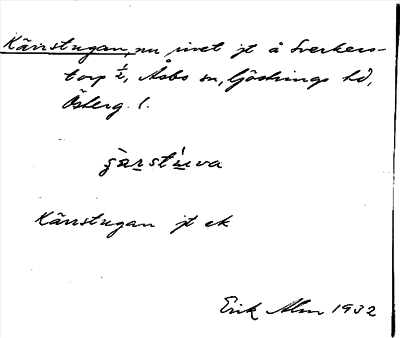 Kärrstugan, nu rivet jt å Sverkers-
torp 1/2, Åsbo sn, Göstrings hd,
Österg. l.
ʂàrst́uva
Kärrstugan jt ek
Erik Alm 1932